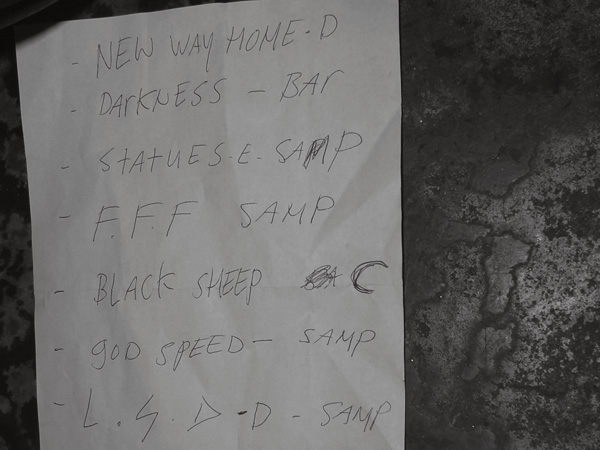 - NEW WAY HOME - D
- DARKNESS - BAR
- STATUES - E - SAMP
- F.F.F SAMP
- BLACK SHEEP C
- GOD SPEED - SAMP
- L.S.D - D - SAMP